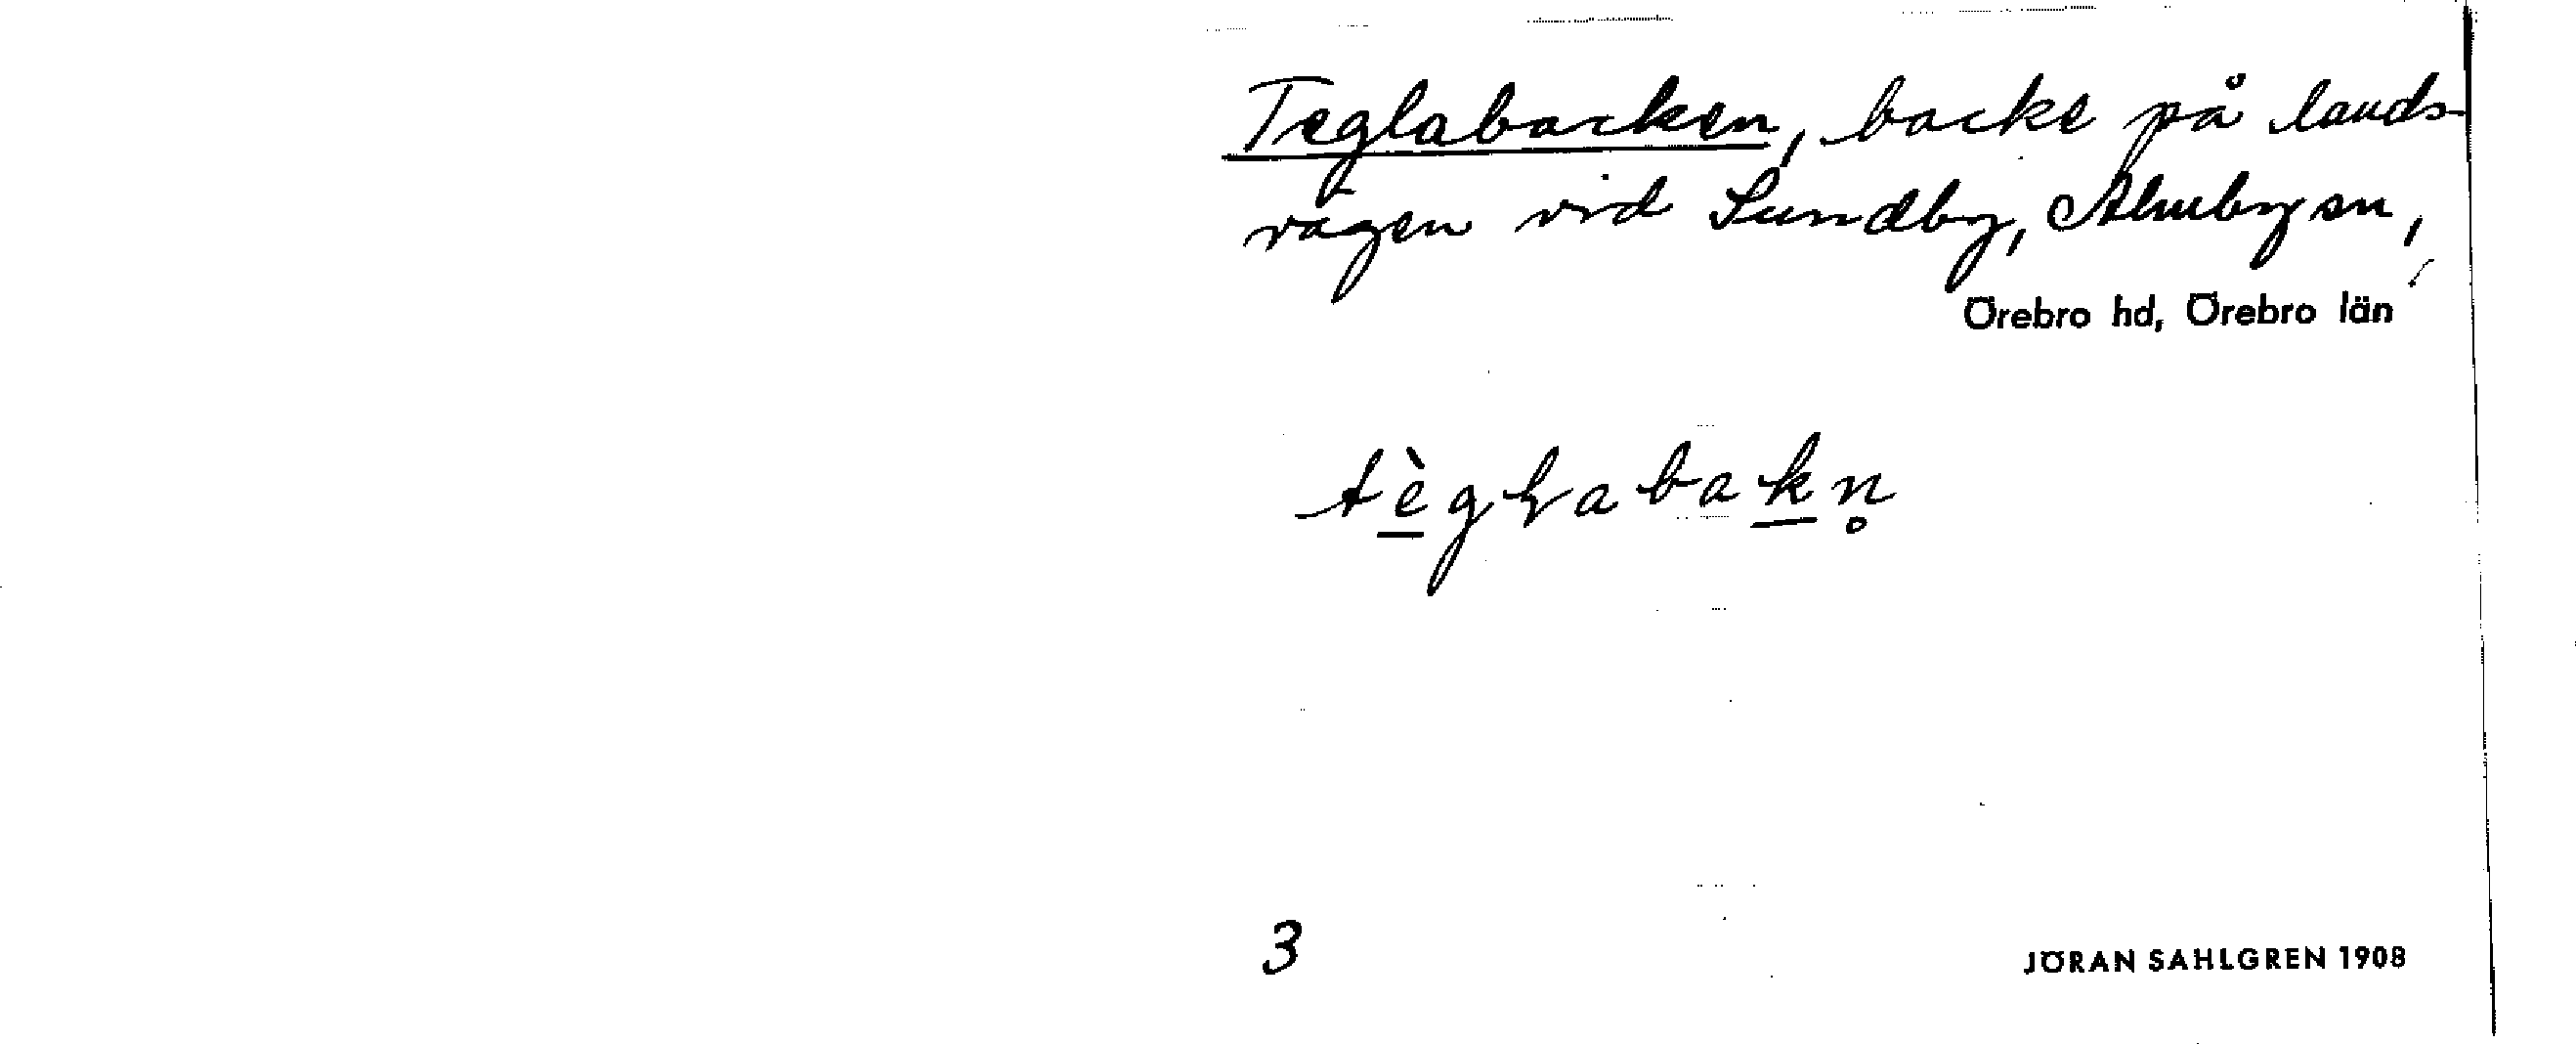 Teglabacken, backe på lands-
vägen vid Sundby, Almby sn,
Örebro hd, Örebro län
tègɽabakn̥
3
JÖRAN SAHLGREN 1908